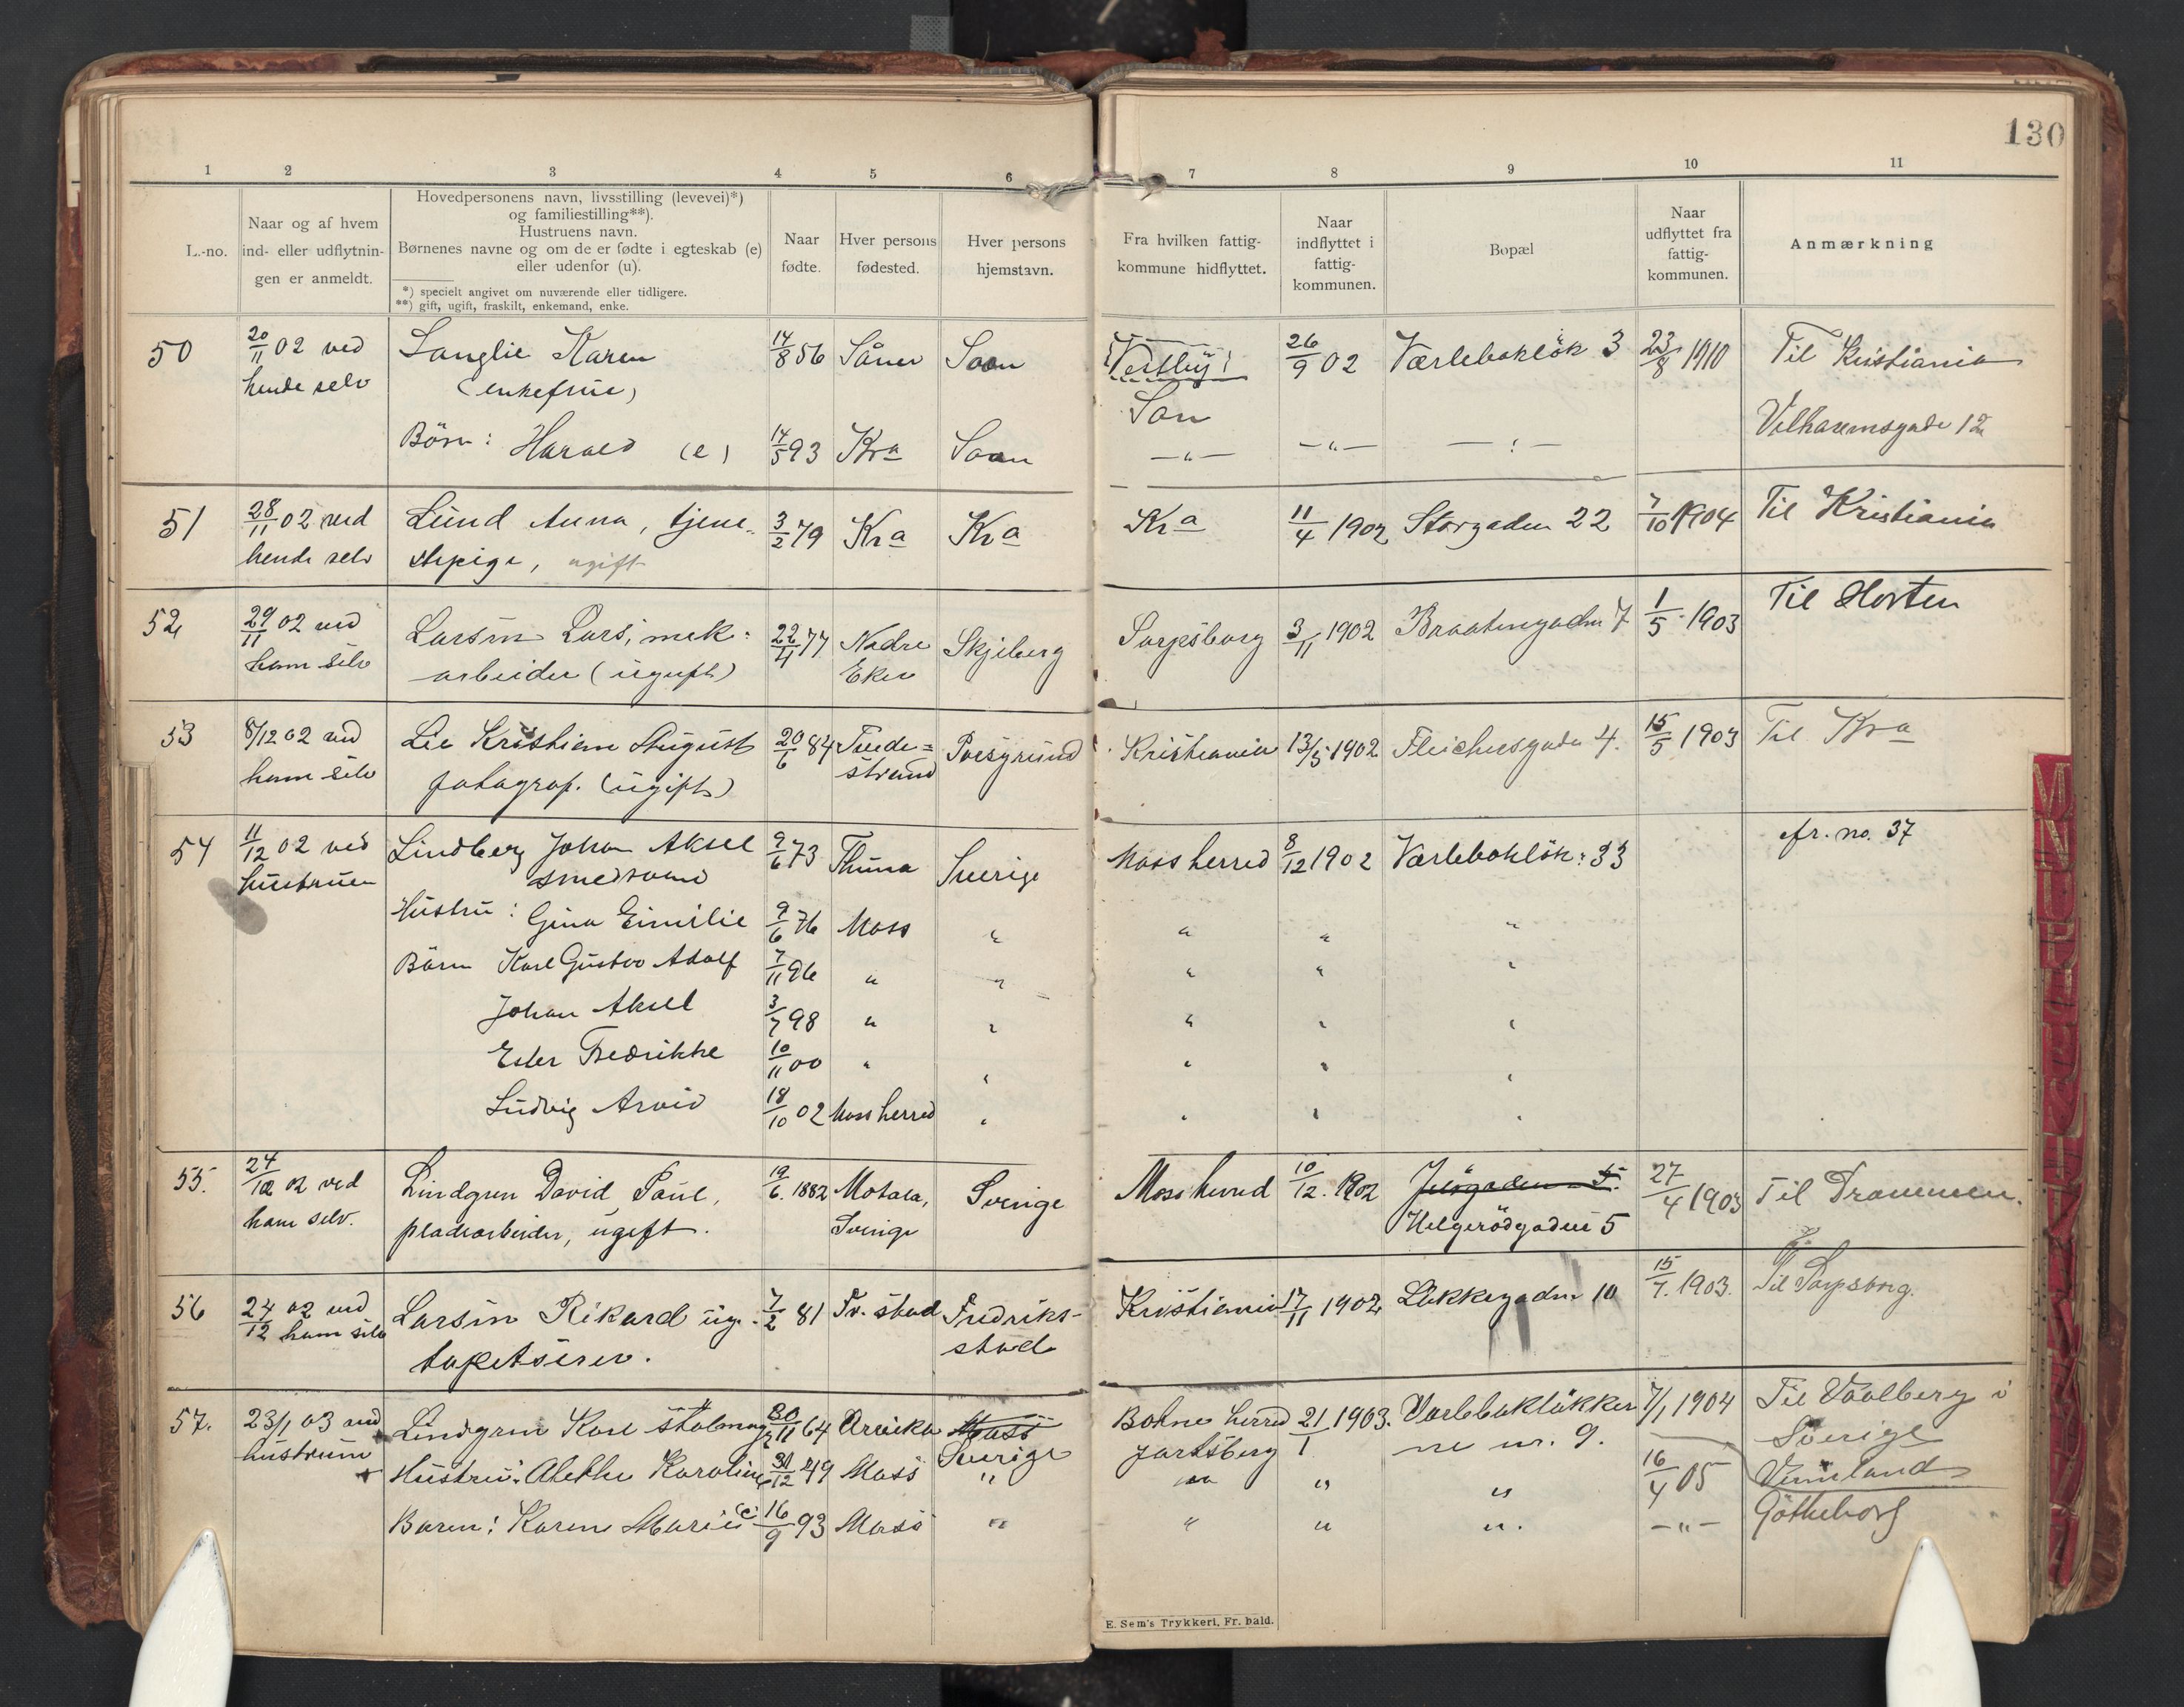 130
1 2 3 4 5 6 7 8 9 10 11
L.-no.
Naar og af hvem
ind- eller udflytnin-
gen er anmeldt.
Hovedpersonens navn, livsstilling (levevei)*)
og familiestilling**).
Hustruens navn.
Børnenes navne og om de er fødte i egteskab (e)
eller udenfor (u).
*) specielt angivet om nuværende eller tidligere.
**) gift, ugift, fraskilt, enkemand, enke.
Naar
fødte.
Hver persons
fødested.
Hver persons
hjemstavn.
Fra hvilken fattig-
kommune hidflyttet.
Naar
indflyttet i
fattig-
kommunen.
Bopæl
Naar
udflyttet fra
fattig-
kommunen.
Anmærkning
50 20/11 02 ved Langlie Karen 14/8 56 Såner Soon Vestby 26/9 02 Værlebakløk 3 23/8 1910 Til Kristiania
hende selv (enkefrue) Son
Börn: Harald (e) 14/5 93 Kra Soon —"— —"— —"— 12
51 28/11 02 ved Lund Anna, tjene- 3/2 79 Kra Kra Kra 11/4 1902 Storgaden 22 7/10 1904 Til Kristiania
hende selv stepige, ugift
52 29/11 02 ved Larsen Lars, mek: 22/4 77 Nedre Skjeberg Sarpsborg 3/11 1902 Braatengaden 7 1/5 1903 Til Horten
ham selv arbeider (ugift) Eker
53 8/12 02 ved Lie Kristian August 20/6 84 Tvede= Porsgrund Kristiania 13/5 1902 Fleichersgade 4. 15/5 1903 Til Kra
ham selv fotograf. (ugift) strand
54 11/12 02 ved Lindberg Johan Aksel 9/6 73 Sverige Moss herred 8/12 1902 Værlebakløk: 33 cfr. no. 37
hustruen smedsvend
Hustru: Gina Emilie 9/6 76 Moss " " " "
Börn Karl Gustav Adolf 7/11 96 " " " " "
Johan Aksel 3/7 98 " " " " "
Ester Fredrikke 10/11 00 " " " " "
Ludvig Arvid 18/10 02 Moss herred " " " "
55. 24/12 02 ved Lindgren David Paul, 19/6. 1882 Motala, Sverige Moss herred 10/12. 1902 Jeløgaden 5. 27/4 1903 Til Drammen.
ham selv. pladearbeider, ugift. Sverige Helgerödgaden 5
56 24/12 02 ved Larsen Rikard ug. 7/2 81 Fr. stad Fredriks- Kristiania 17/11 1902 Løkkegaden 10 15/7. 1903. Til Sarpsborg.
ham selv tapetserer. stad
57. 23/1 03 ved Lindgren Karl 30/11 64 Arvika Moss Botne herred 21/1 1903. Værlebakløkker 7/1 1904 Til Vaalberg i
hustruen Sverige Jarlsberg ne nr. 9. Sverige
Hustru: Alethe Karoline 31/12 49 Moss " " " " 16/4 05 Vermland
Baren: Karen Marie (e) 16/9 93 Moss " " " " —"— Götheborg
E. Sem's Trykkeri, Fr. hald.